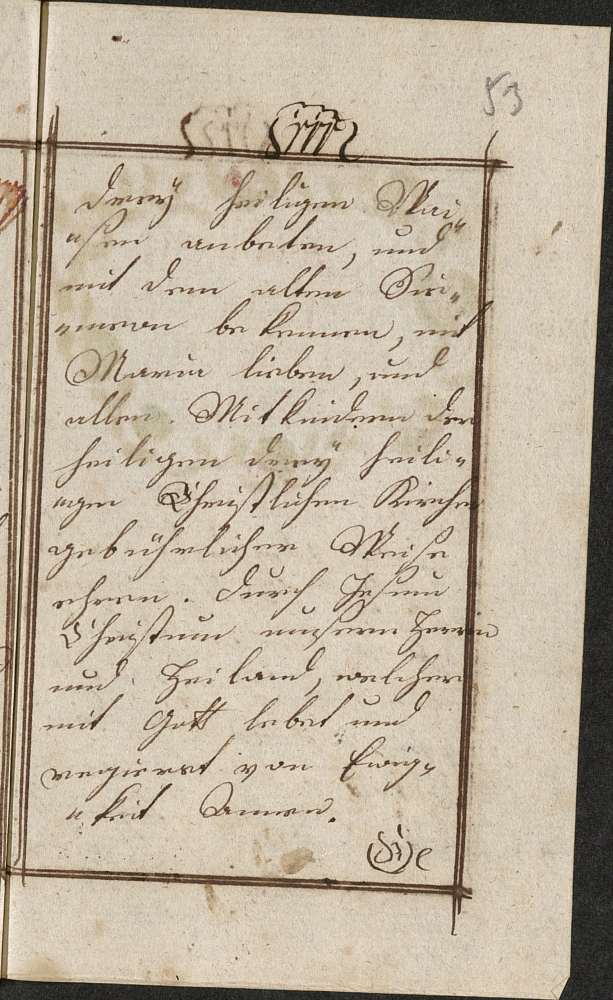 53
dreÿ heiligen Wei„
„sen anbeten, und
mit dem alten Sie„
„meon bekennen, mit
Maria lieben, und
allen. Mitkindern der
heiligen dreÿ heili„
„gen Christlichen Kirchen
gebührlicher Weise
ehren. durch Jesum
Christum unsern Herrn
und. Heiland, welcher
mit Gott lebet und
regieret von Ewig„
„keit Amen.
Die